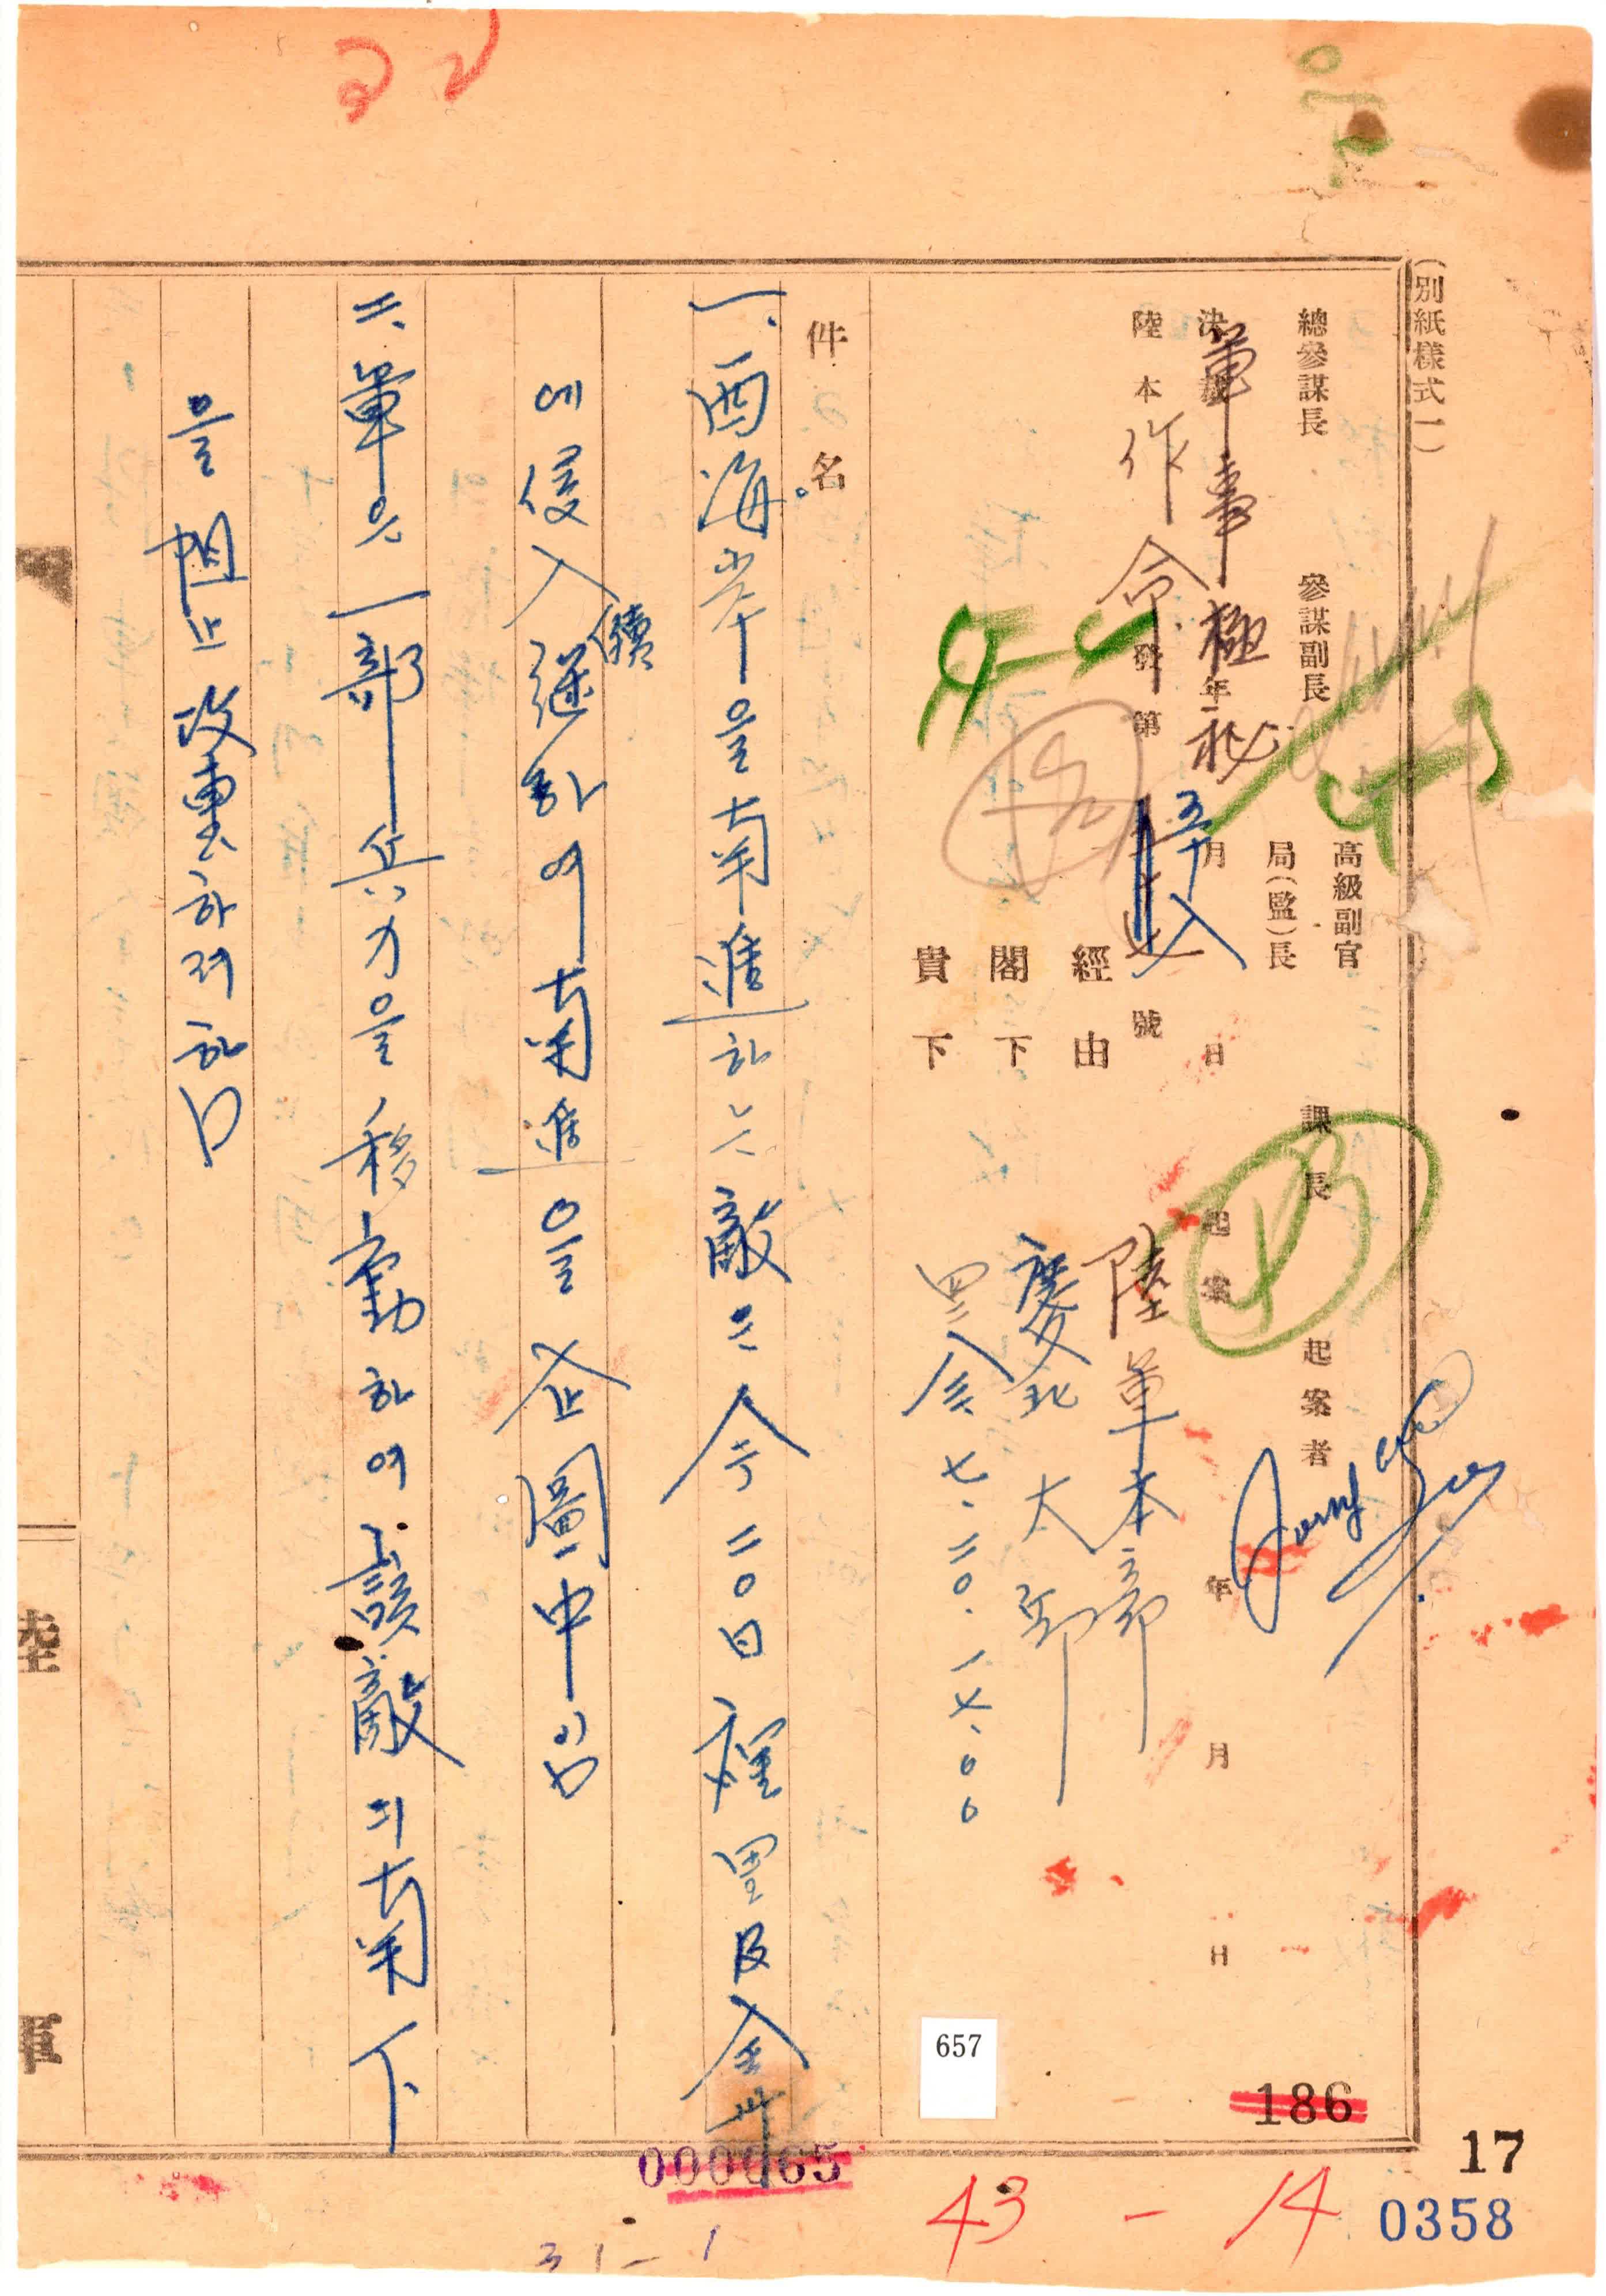 (別紙樣式一)
總參謀長 參謀副長 高級副官 局(監)長 課長 起案者
軍事極秘
決 年 月 日 起案 年 月 日
陸本作命 發第 五十八 號
陸軍本部
經由
閣下
貴下
慶北大邱
四二八三、七、二〇、一七、〇〇
件名
一、西海岸을 南進하는 敵은 今二〇日 裡里 及 全州
에 侵入 繼續하여 南進을 企圖中임
二、軍은 一部 兵力을 移動하여 該敵의 南下
을 阻止 攻擊하려 함
陸
軍
657
186
17
000065
43-14
0358
31-1